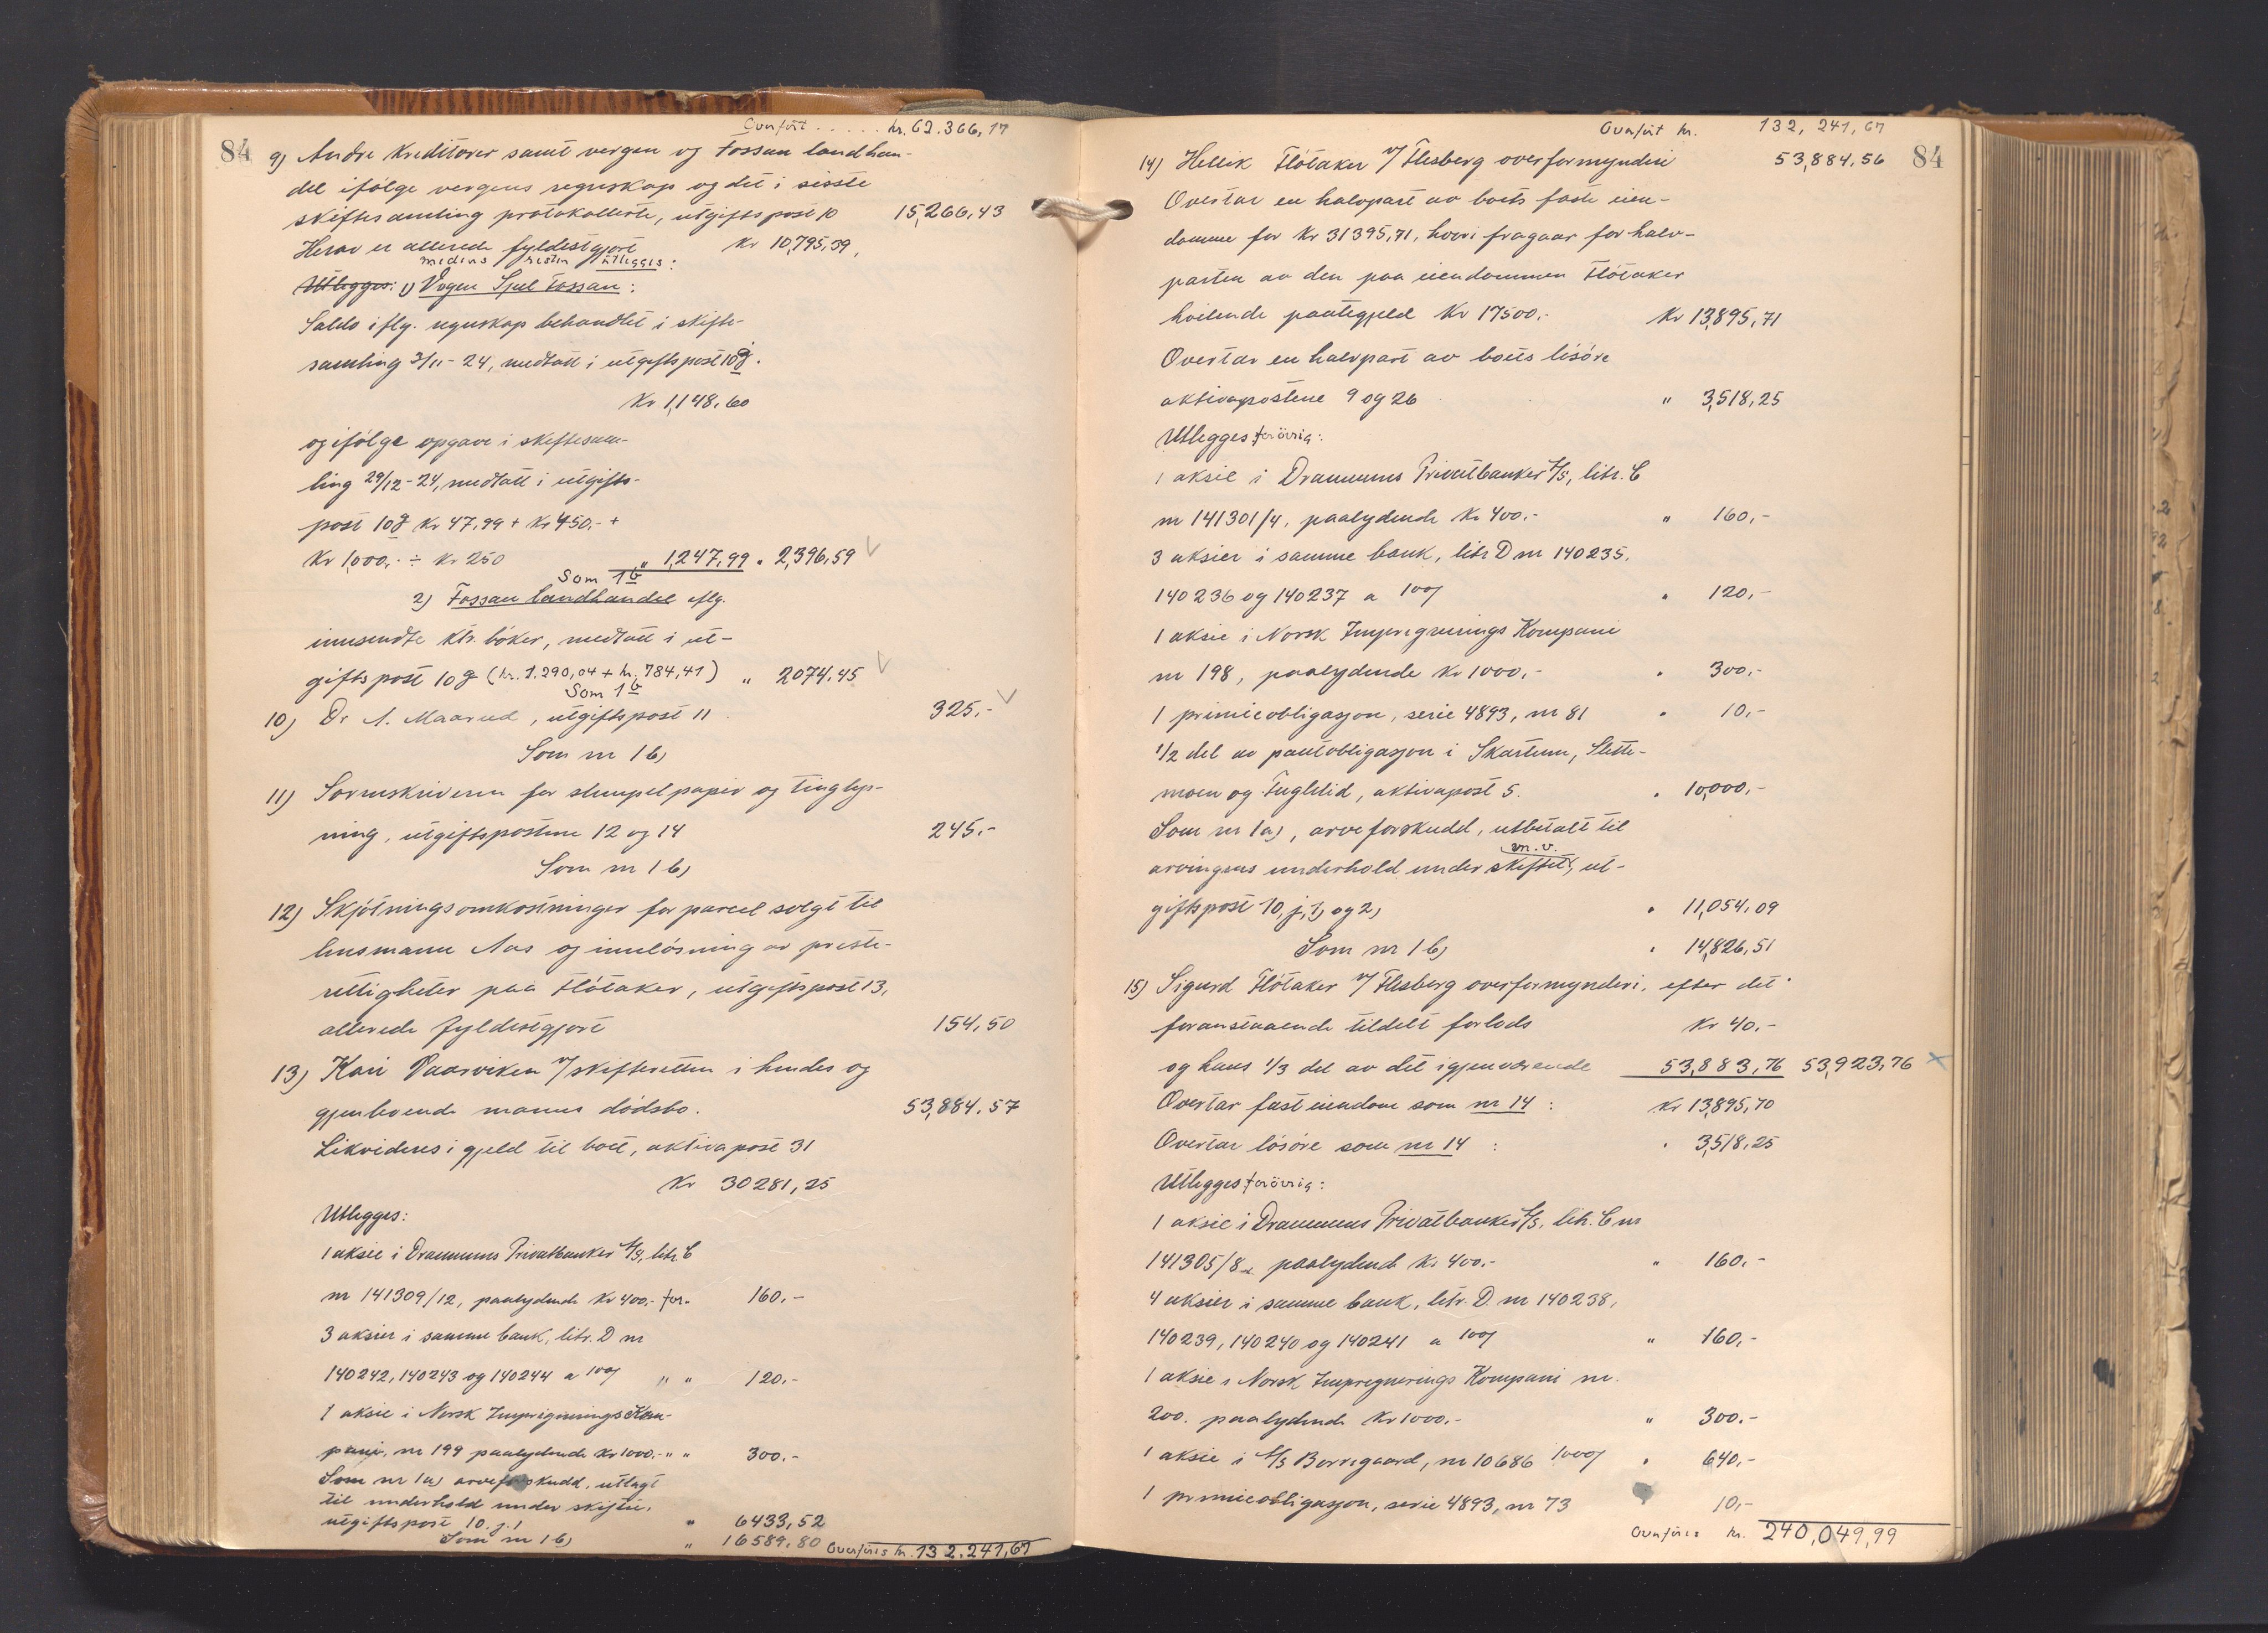 Overført ..... kr. 62.366,17
84 9) Andre kreditorer samt vergen og Fossan landhan-
del ifølge vergens regnskap og det i sisste
skiftesamling protokollerte, utgiftspost 10 15,266,43
Herav er allerede fyldestgjort Kr 10,795,39,
medens resten utlegges:
Utlegges: 1) Vergen Sjul Fossan:
Saldo iflg. regnskap behandlet i skifte-
samling 3/11-24, medtatt i utgiftspost 10g.
Kr 1,148,60
og ifølge opgave i skiftesam-
ling 29/12-24, medtatt i utgifts-
post 10g Kr 47,99 + Kr 450,- +
Kr 1,000,- ÷ Kr 250 " 1,247,99 " 2,396,59
Som 1b
2) Fossan landhandel iflg.
innsendte ktr. bøker, medtatt i ut-
giftspost 10g (kr. 1.290,04 + kr. 784,41) " 2074,45
Som 1b
10) Dr A. Maarud, utgiftspost 11 325,-
Som nr 1 b)
11) Sorenskriveren for stempelpapir og tinglys-
ning, utgiftspostene 12 og 14 245,-
Som nr 1 b)
12) Skjøtningsomkostninger for parcel solgt til
lensmann Aas og innløsning av preste-
rettigheter paa Fløtaker, utgiftspost 13,
allerede fyldestgjort 154,50
13) Kari Vaarviken v/ skifteretten i hendes og
gjenlevende manns dødsbo. 53,884,57
Likvideres i gjeld til boet, aktivapost 31
Kr 30281,25
Utlegges:
1 aksie i Drammens Privatbanker A/S, litr C
nr 141309/12, paalydende Kr 400,- for. 160,-
3 aksier i samme bank, litr. D nr
140242, 140243 og 140244 a 100/ " " 120,-
1 aksie i Norsk Impregnerings Kom-
pani, nr 199 paalydende Kr 1000,- " " 300,-
Som nr 1a) arveforskudd, utlagt
til underhold under skiftet,
utgiftspost 10. j. 1 " 6433,52
Som nr 1 b) " 16589,80 Overføres kr. 132,241,67
Overført kr. 132,241,67
14) Hellik Fløtaker v/ Flesberg overformynderi 53,884,56 84
Overtar en halvpart av boets faste eien-
domme for Kr 31395,71, hvori fragaar for halv-
parten av den paa eiendommen Fløtaker
hvilende pantegjeld Kr 17500,- Kr 13,895,71
Overtar en halvpart av boets løsøre
aktivapostene 9 og 26 " 3,518,25
Utlegges forøvrig:
1 aksie i Drammens Privatbanker A/S, litr. C
nr 141301/4, paalydende Kr 400,- " 160,-
3 aksier i samme bank, litr D nr 140235,
140236 og 140237 a 100/ " 120,-
1 aksie i Norsk Impregnerings Kompani
nr 198, paalydende Kr 1000,- " 300,-
1 premieobligasjon, serie 4893, nr 81 " 10,-
1/2 del av pantobligasjon i Skartum, Slette-
moen og Fuglelid, aktivapost 5. " 10,000,-
Som nr 1a), arveforskudd, utbetalt til
m.v.
arvingens underhold under skiftet, ut-
giftspost 10, j, 1) og 2) " 11,054,09
Som nr 1 b) " 14,826,51
15) Sigurd Fløtaker v/ Flesberg overformynderi, efter det
foranstaaende tildelt forlods Kr 40,-
og hans 1/3 del av det igjenværende 53,883,76 53,923,76
Overtar fast eiendom som nr 14: Kr 13,895,70
Overtar løsøre som nr 14: " 3,518,25
Utlegges forøvrig:
1 aksie i Drammens Privatbanker A/S, litr. C nr
141305/8 paalydende Kr 400,- " 160,-
4 aksier i samme bank, litr. D. nr 140238,
140239, 140240 og 140241 a 100/ " 160,-
1 aksie i Norsk Impregnerings Kompani nr.
200. paalydende Kr 1000,- " 300,-
1 aksie i A/S Borregaard, nr 10686 1000/ " 640,-
1 premieobligasjon, serie 4893, nr 73 10,-
Overføres kr. 240,049,99